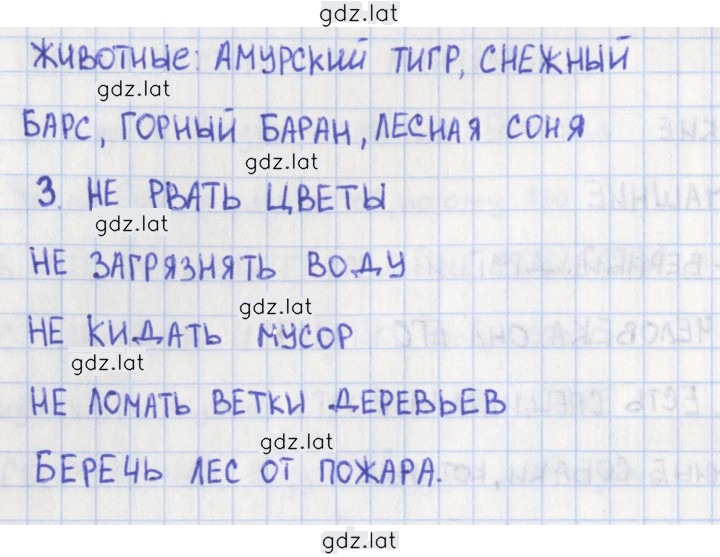 gdz.lat
ЖИВОТНЫЕ: АМУРСКИЙ ТИГР, СНЕЖНЫЙ
gdz.lat
БАРС, ГОРНЫЙ БАРАН, ЛЕСНАЯ СОНЯ
gdz.lat
3. НЕ РВАТЬ ЦВЕТЫ
gdz.lat
НЕ ЗАГРЯЗНЯТЬ ВОДУ
gdz.lat
НЕ КИДАТЬ МУСОР
gdz.lat
НЕ ЛОМАТЬ ВЕТКИ ДЕРЕВЬЕВ
gdz.lat
БЕРЕЧЬ ЛЕС ОТ ПОЖАРА.
gdz.lat